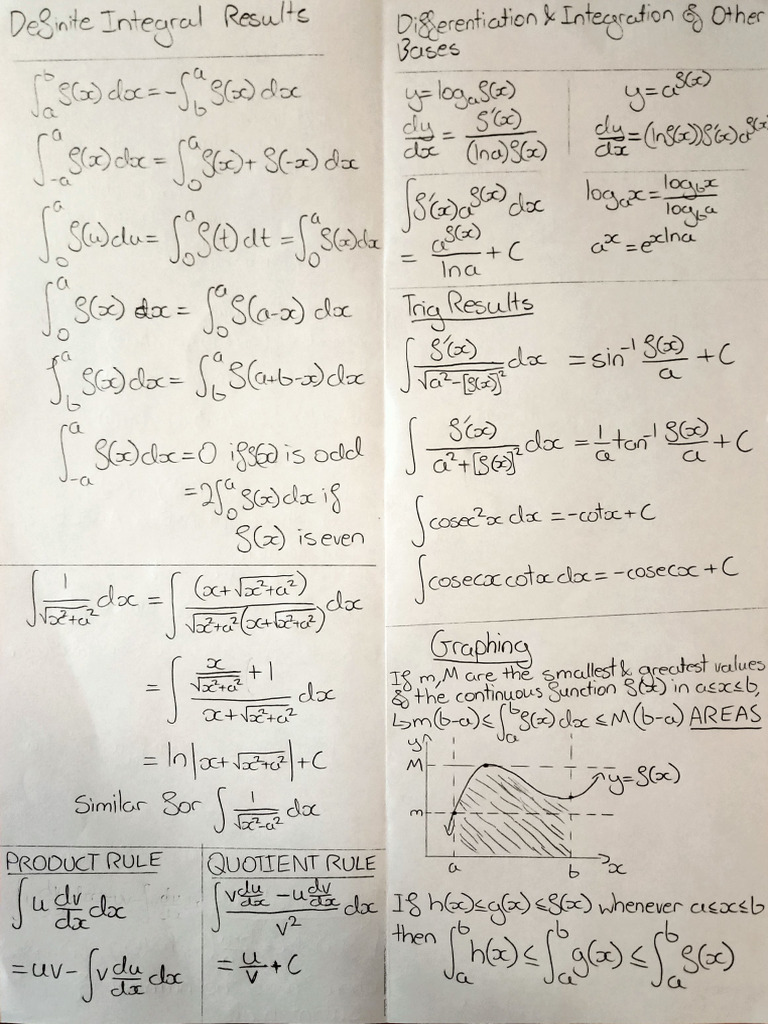 Definite Integral Results
∫_a^b f(x) dx = -∫_b^a f(x) dx
∫_{-a}^a f(x) dx = ∫_0^a f(x) + f(-x) dx
∫_0^a f(u) du = ∫_0^a f(t) dt = ∫_0^a f(x) dx
∫_0^a f(x) dx = ∫_0^a f(a-x) dx
∫_b^a f(x) dx = ∫_b^a f(a+b-x) dx
∫_{-a}^a f(x) dx = 0 if f(x) is odd
= 2∫_0^a f(x) dx if
f(x) is even
∫ 1/√(x²+a²) dx = ∫ (x+√(x²+a²))/(√(x²+a²)(x+√(x²+a²))) dx
= ∫ (x/√(x²+a²) + 1)/(x+√(x²+a²)) dx
= ln|x+√(x²+a²)| + C
Similar for ∫ 1/√(x²-a²) dx
PRODUCT RULE
∫ u dv/dx dx
= uv - ∫ v du/dx dx
QUOTIENT RULE
∫ (v du/dx - u dv/dx)/v² dx
= u/v + C
Differentiation & Integration of Other
Bases
y = log_a f(x)
dy/dx = f'(x)/((ln a) f(x))
y = a^{f(x)}
dy/dx = (ln f(x)) f'(x) a^{f(x)}
∫ f'(x) a^{f(x)} dx
= a^{f(x)}/ln a + C
log_a x = log_b x/log_b a
a^x = e^{x ln a}
Trig Results
∫ f'(x)/√(a²-[f(x)]²) dx = sin⁻¹ f(x)/a + C
∫ f'(x)/(a²+[f(x)]²) dx = 1/a tan⁻¹ f(x)/a + C
∫ cosec²x dx = -cotx + C
∫ cosecx cotx dx = -cosecx + C
Graphing
If m, M are the smallest & greatest values
of the continuous function f(x) in a≤x≤b,
↳ m(b-a) ≤ ∫_a^b f(x) dx ≤ M(b-a) AREAS
y
M
y = f(x)
m
a b x
If h(x) ≤ g(x) ≤ f(x) whenever a≤x≤b
then ∫_a^b h(x) ≤ ∫_a^b g(x) ≤ ∫_a^b f(x)